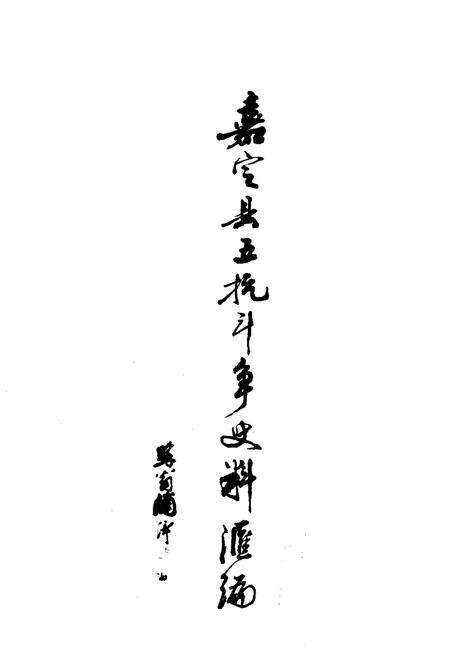 嘉定县五抗斗争史料滙编